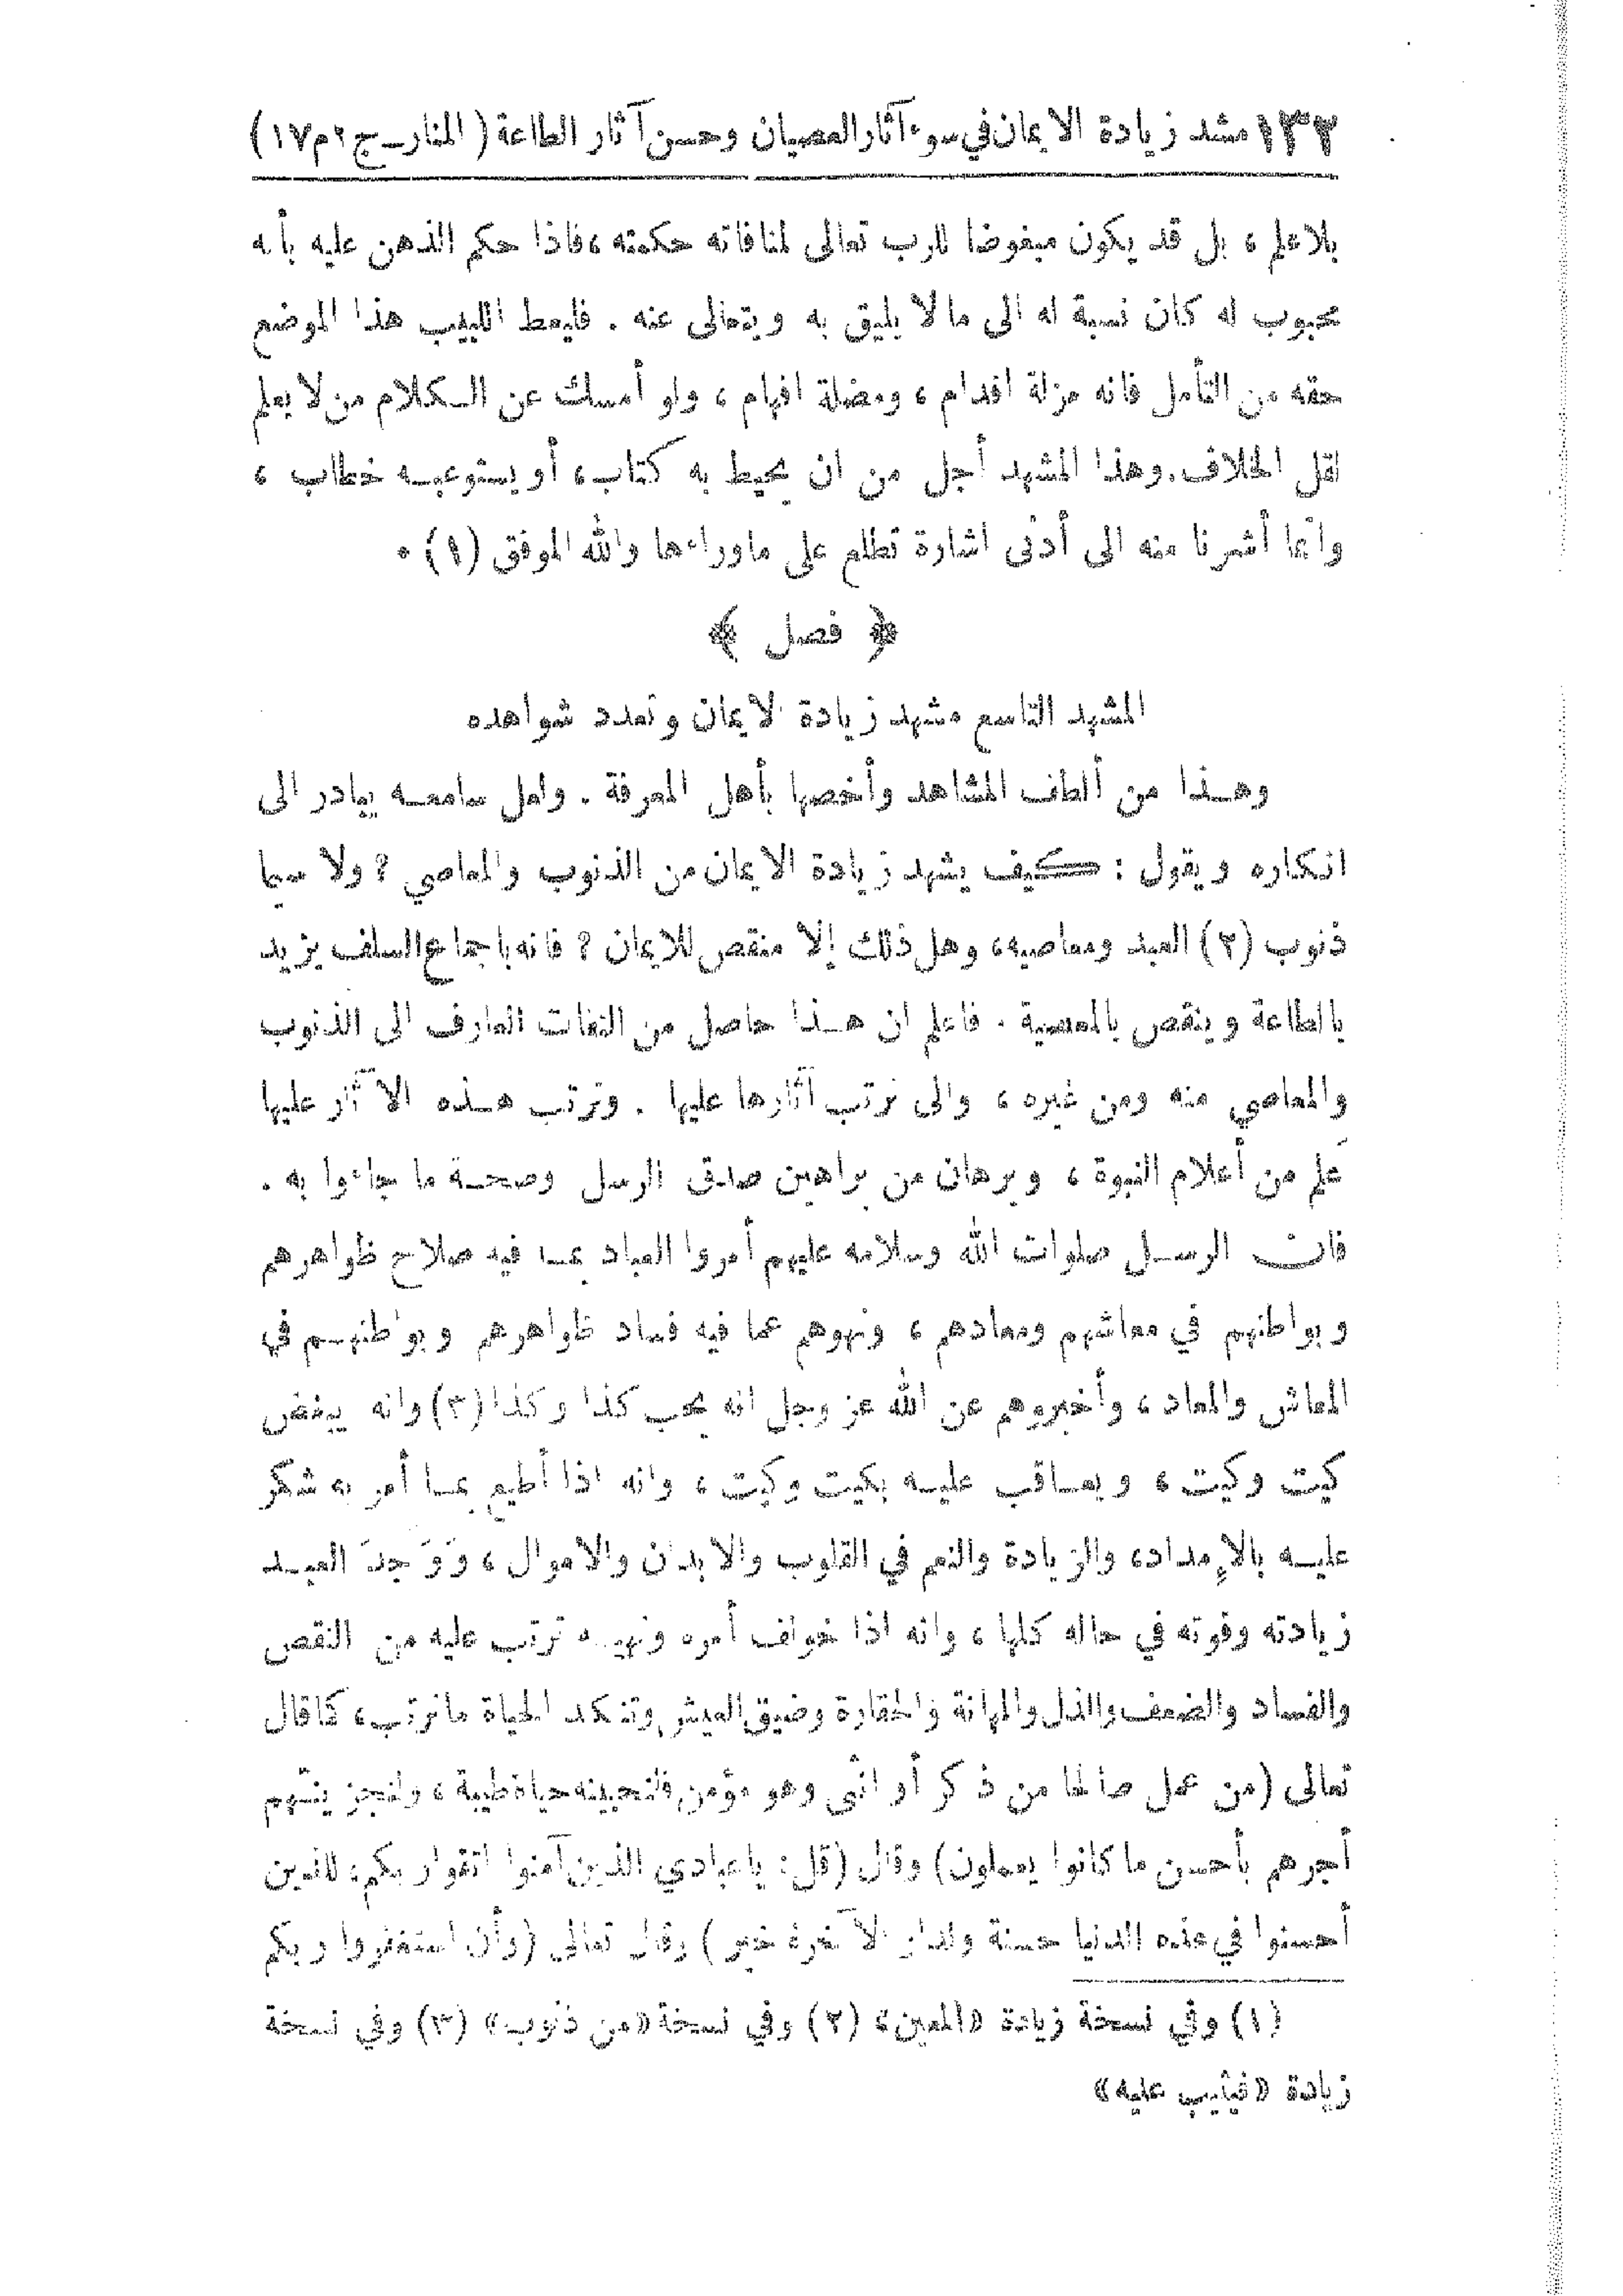 ١٣٢ مشد زيادة الايمان في سوء آثار العصيان وحسن آثار الطاعة (المنار_ج٢م١٧)
بلاعلم ، بل قد يكون مبغوضا للرب تعالى لمنافاته حكمته ، فاذا حكم الذهن عليه بأنه
محبوب له كان نسبة له الى ما لا يليق به ويتعالى عنه . فليعط اللبيب هذا الموضع
حقه من التأمل فانه مزلة اقدام ، ومضلة افهام ، ولو أمسك عن الكلام من لا يعلم
لقل الخلاف . وهذا المشهد أجل من ان يحيط به كتاب ، أو يستوعبه خطاب ،
وانما أشرنا منه الى أدنى اشارة تطلع على ماوراءها والله الموفق (١) .
﴿ فصل ﴾
المشهد التاسع مشهد زيادة الايمان وتعدد شواهده
وهذا من ألطف المشاهد وأخصها بأهل المعرفة . ولعل سامعه يبادر الى
انكاره ويقول : كيف يشهد زيادة الايمان من الذنوب والمعاصي ؟ ولا سيما
ذنوب (٢) العبد ومعاصيه ، وهل ذلك إلا منقص للايمان ؟ فانه باجماع السلف يزيد
بالطاعة وينقص بالمعصية . فاعلم ان هذا حاصل من التفات العارف الى الذنوب
والمعاصي منه ومن غيره ، والى ترتب آثارها عليها . وترتب هذه الآثار عليها
عَلم من أعلام النبوة ، وبرهان من براهين صدق الرسل وصحة ما جاءوا به .
فان الرسل صلوات الله وسلامه عليهم أمروا العباد بما فيه صلاح ظواهرهم
وبواطنهم في معاشهم ومعادهم ، ونهوهم عما فيه فساد ظواهرهم وبواطنهم في
المعاش والمعاد ، وأخبروهم عن الله عز وجل انه يحب كذا وكذا (٣) وانه يبغض
كيت وكيت ، ويعاقب عليه بكيت وكيت ، وانه اذا أطيع بما أمر به شكر
عليه بالإمداد ، والزيادة والنعم في القلوب والابدان والاموال ، وَوَجدَ العبد
زيادته وقوته في حاله كلها ، وانه اذا خولف أمره ونهيه ترتب عليه من النقص
والفساد والضعف والذل والمهانة والحقارة وضيق العيش وتنكد الحياة ما ترتب ، كما قال
تعالى (من عمل صالحا من ذكر أو انثى وهو مؤمن فلنحيينه حياة طيبة ، ولنجزينّهم
أجرهم بأحسن ما كانوا يعملون) وقال (قل : ياعبادي الذين آمنوا اتقوا ربكم ، للذين
أحسنوا في هذه الدنيا حسنة ولدار الآخرة خير) وقال تعالى (وأن استغفروا ربكم
(١) وفي نسخة زيادة «المعين» (٢) وفي نسخة «من ذنوب» (٣) وفي نسخة
زيادة «فيثيب عليه»